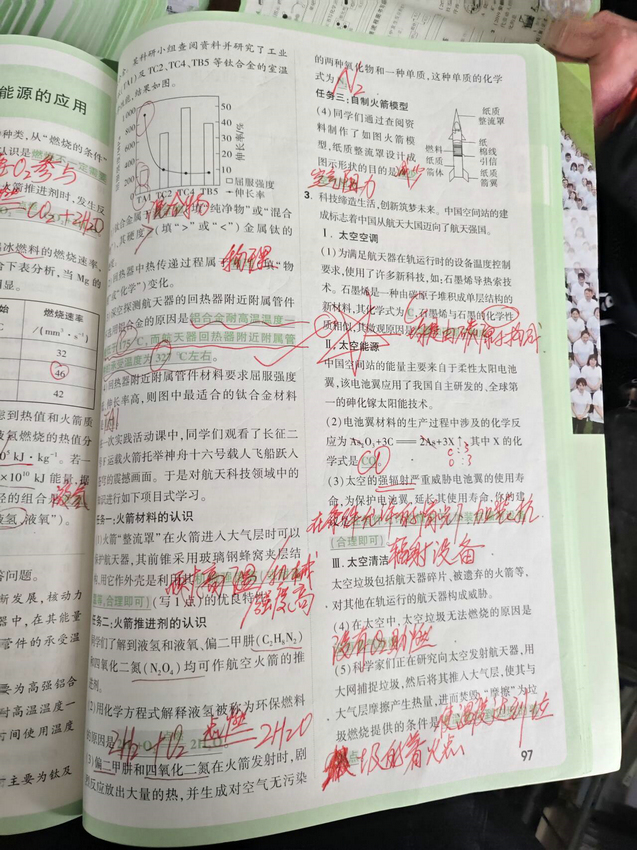 能源的应用
种类,从“燃烧的条件”
火箭推进剂时,发生反
CO₂+2H₂O
冰燃料的燃烧速率,
合下表分析,当Mg的
燃烧速率
/(mm³·s⁻¹)
32
46
42
虑到热值和火箭质
液氢燃烧的热值分
kJ·kg⁻¹。若一
×10¹⁰ kJ 能量,
轻的组合
液氢
答问题。
发展,核动力
器中,在其能量
管件的承受温
要为高强铝合
耐高温温度一
间使用温度
主要为钛及
某科研小组查阅资料并研究了工业
TA1)及TC2、TC4、TB5等钛合金的室温
结果如图。
1 000
800
600
400
200
50
40
30
20
10
伸长率/%
TA1 TC2 TC4 TB5
屈服强度
伸长率
钛合金属于混合物(填“纯净物”或“混合
其硬度>(填“>”或“<”)金属钛的
回热器中热传递过程属于物理(填“物
或“化学”)变化。
探空探测航天器的回热器附近附属管件
选用铝合金的原因是铝合金耐高温温度一
175 ℃,而航天器回热器附近附属管
温度为 327 ℃左右。
回热器附近附属管件材料要求屈服强度
伸长率高,则图中最适合的钛合金材料
TA1
一次实践活动课中,同学们观看了长征二
下运载火箭托举神舟十六号载人飞船跃入
的震撼画面。于是对航天科技领域中的
识进行如下项目式学习。
任务一:火箭材料的认识
(1)火箭“整流罩”在火箭进入大气层时可以
保护航天器,其前锥采用玻璃钢蜂窝夹层结
构,用它作外壳是利用其耐高温/机械
强度高
等,合理即可)(写1点)的优良特性。
任务二:火箭推进剂的认识
同学们了解到液氢和液氧、偏二甲肼(C₂H₈N₂)
和四氧化二氮(N₂O₄)均可作航空火箭的推
进剂。
(2)用化学方程式解释液氢被称为环保燃料
的原因是2H₂+O₂ 点燃 2H₂O
(3)偏二甲肼和四氧化二氮在火箭发射时,剧
烈反应放出大量的热,并生成对空气无污染
的两种氧化物和一种单质,这种单质的化学
式为N₂
任务三:自制火箭模型
(4)同学们通过查阅资
料制作了如图火箭模
型,纸质整流罩设计成
图示形状的目的是减小
空气阻力
纸质
整流罩
燃料
纸
棉线
纸质
引信
箭体
纸质
箭翼
3. 科技缔造生活,创新筑梦未来。中国空间站的建
成标志着中国从航天大国迈向了航天强国。
Ⅰ. 太空空调
(1)为满足航天器在轨运行时的设备温度控制
要求,使用了许多新科技,如:石墨烯导热索技
术。石墨烯是一种由碳原子堆积成单层结构的
新材料,其化学式为C,石墨烯与石墨的化学性
质相似,其微观原因是都是由碳原子构成
Ⅱ. 太空能源
中国空间站的能量主要来自于柔性太阳电池
翼,该电池翼应用了我国自主研发的、全球第
一的砷化镓太阳能技术。
(2)电池翼材料的生产过程中涉及的化学反
应为 As₂O₃+3C══2As+3X↑,其中X的化
学式是CO。
C:3
O:3
(3)太空的强辐射严重威胁电池翼的使用寿
命,为保护电池翼,延长其使用寿命,你的建
在条件允许的情况下加装抗
(合理即可)
辐射设备
Ⅲ. 太空清洁
太空垃圾包括航天器碎片、被遗弃的火箭等,
对其他在轨运行的航天器构成威胁。
(4)在太空中,太空垃圾无法燃烧的原因是
没有O₂助燃
(5)科学家们正在研究向太空发射航天器,用
大网捕捉垃圾,然后将其推入大气层,使其与
大气层摩擦产生热量,进而焚毁。“摩擦”为垃
圾燃烧提供的条件是使温度达到垃
圾的着火点
97